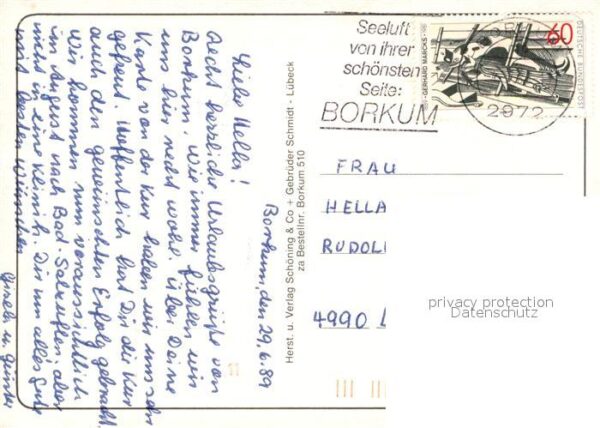 Borkum, den 29.6.89
Liebe Hella!
Recht herzliche Urlaubsgrüße von
Borkum. Wie immer fühlen wir
uns hier recht wohl. Über Deine
Karte von der Kur haben wir uns sehr
gefreut. Hoffentlich hat Dir die Kur
auch den gewünschten Erfolg gebracht.
Wir kommen nun voraussichtlich
im August nach Bad-Salzuflen, aber
nicht in eine Klinik. Dir nun alles Gute
mit besten Wünschen
Gisela u. Günter
Herst. u. Verlag Schöning & Co + Gebrüder Schmidt - Lübeck
za Bestellnr. Borkum 510
Seeluft
von ihrer
schönsten
Seite:
BORKUM
2972
60
DEUTSCHE BUNDESPOST
GERHARD MARCKS
FRAU
HELLA
RUDOL
4990 L
privacy protection
Datenschutz